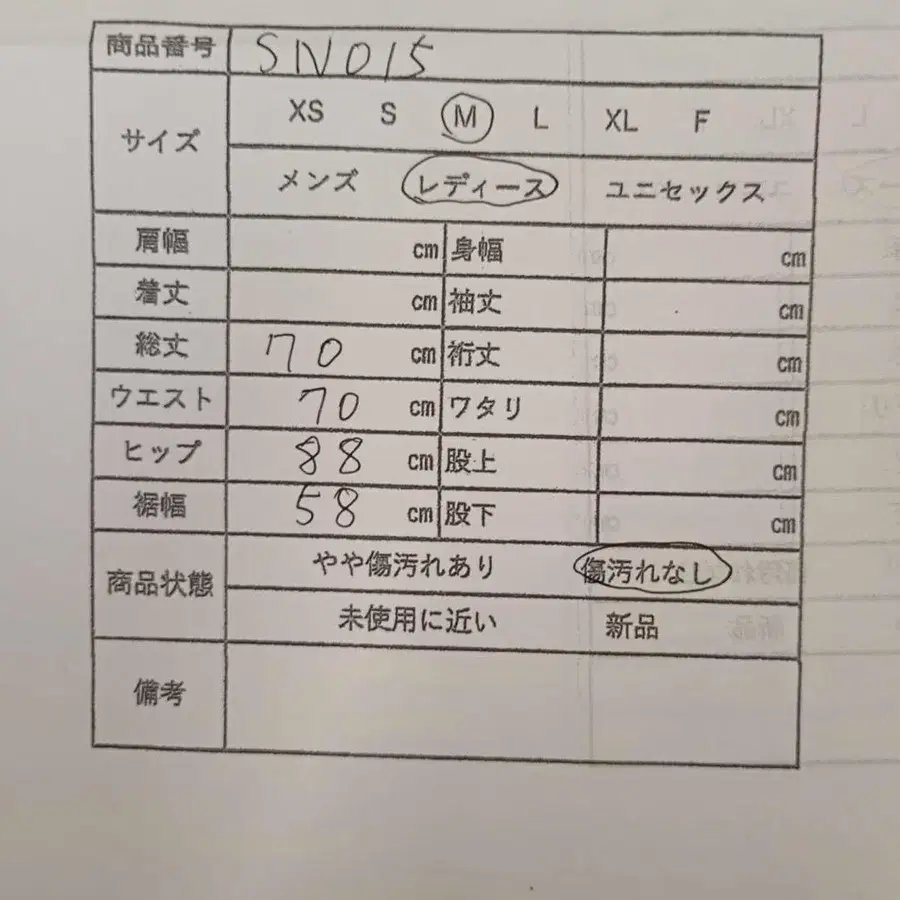 商品番号 SN015
サイズ XS S M L XL F
メンズ レディース ユニセックス
肩幅 cm 身幅 cm
着丈 cm 袖丈 cm
総丈 70 cm 裄丈 cm
ウエスト 70 cm ワタリ cm
ヒップ 88 cm 股上 cm
裾幅 58 cm 股下 cm
商品状態 やや傷汚れあり 傷汚れなし
未使用に近い 新品
備考